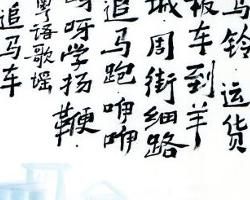 马铃运货
板车到羊
城周街细路
追马跑咿咿
呀呀学扬鞭
粤语歌谣
追马车